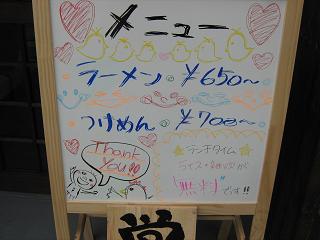 メニュー
ラーメン・¥650~
つけめん・¥700~
Thank
you!!
ランチタイム
ライス
"無料"です!!
営